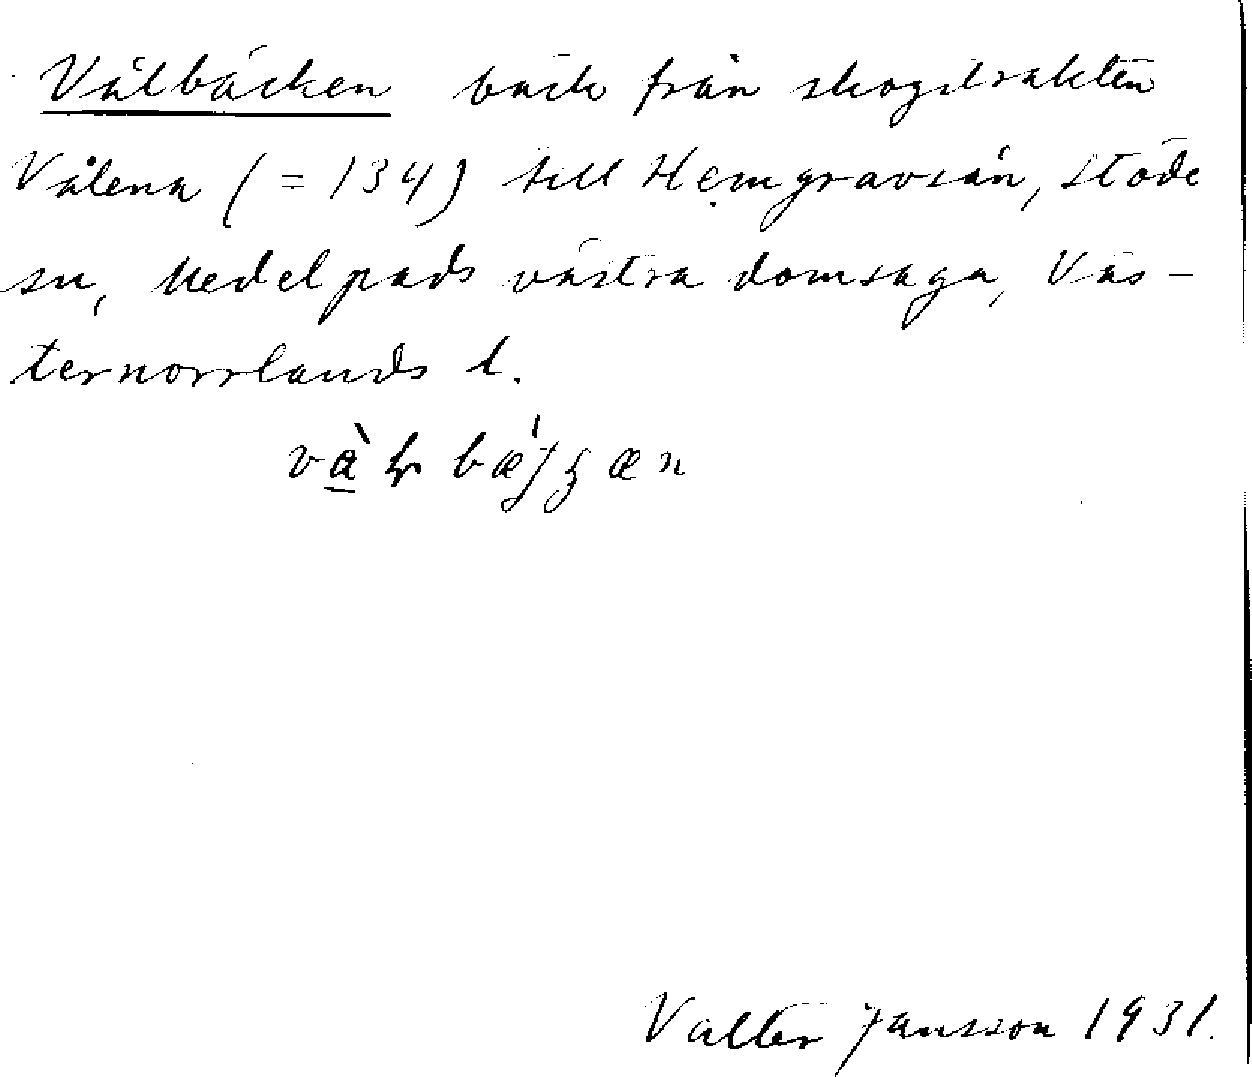 Vålbäcken bäck från skogstrakten
Vålena (= 134) till Hemgravsån, Stöde
sn, Medelpads västra domsaga, Väs-
ternorrlands l.
Valter Jansson 1931.